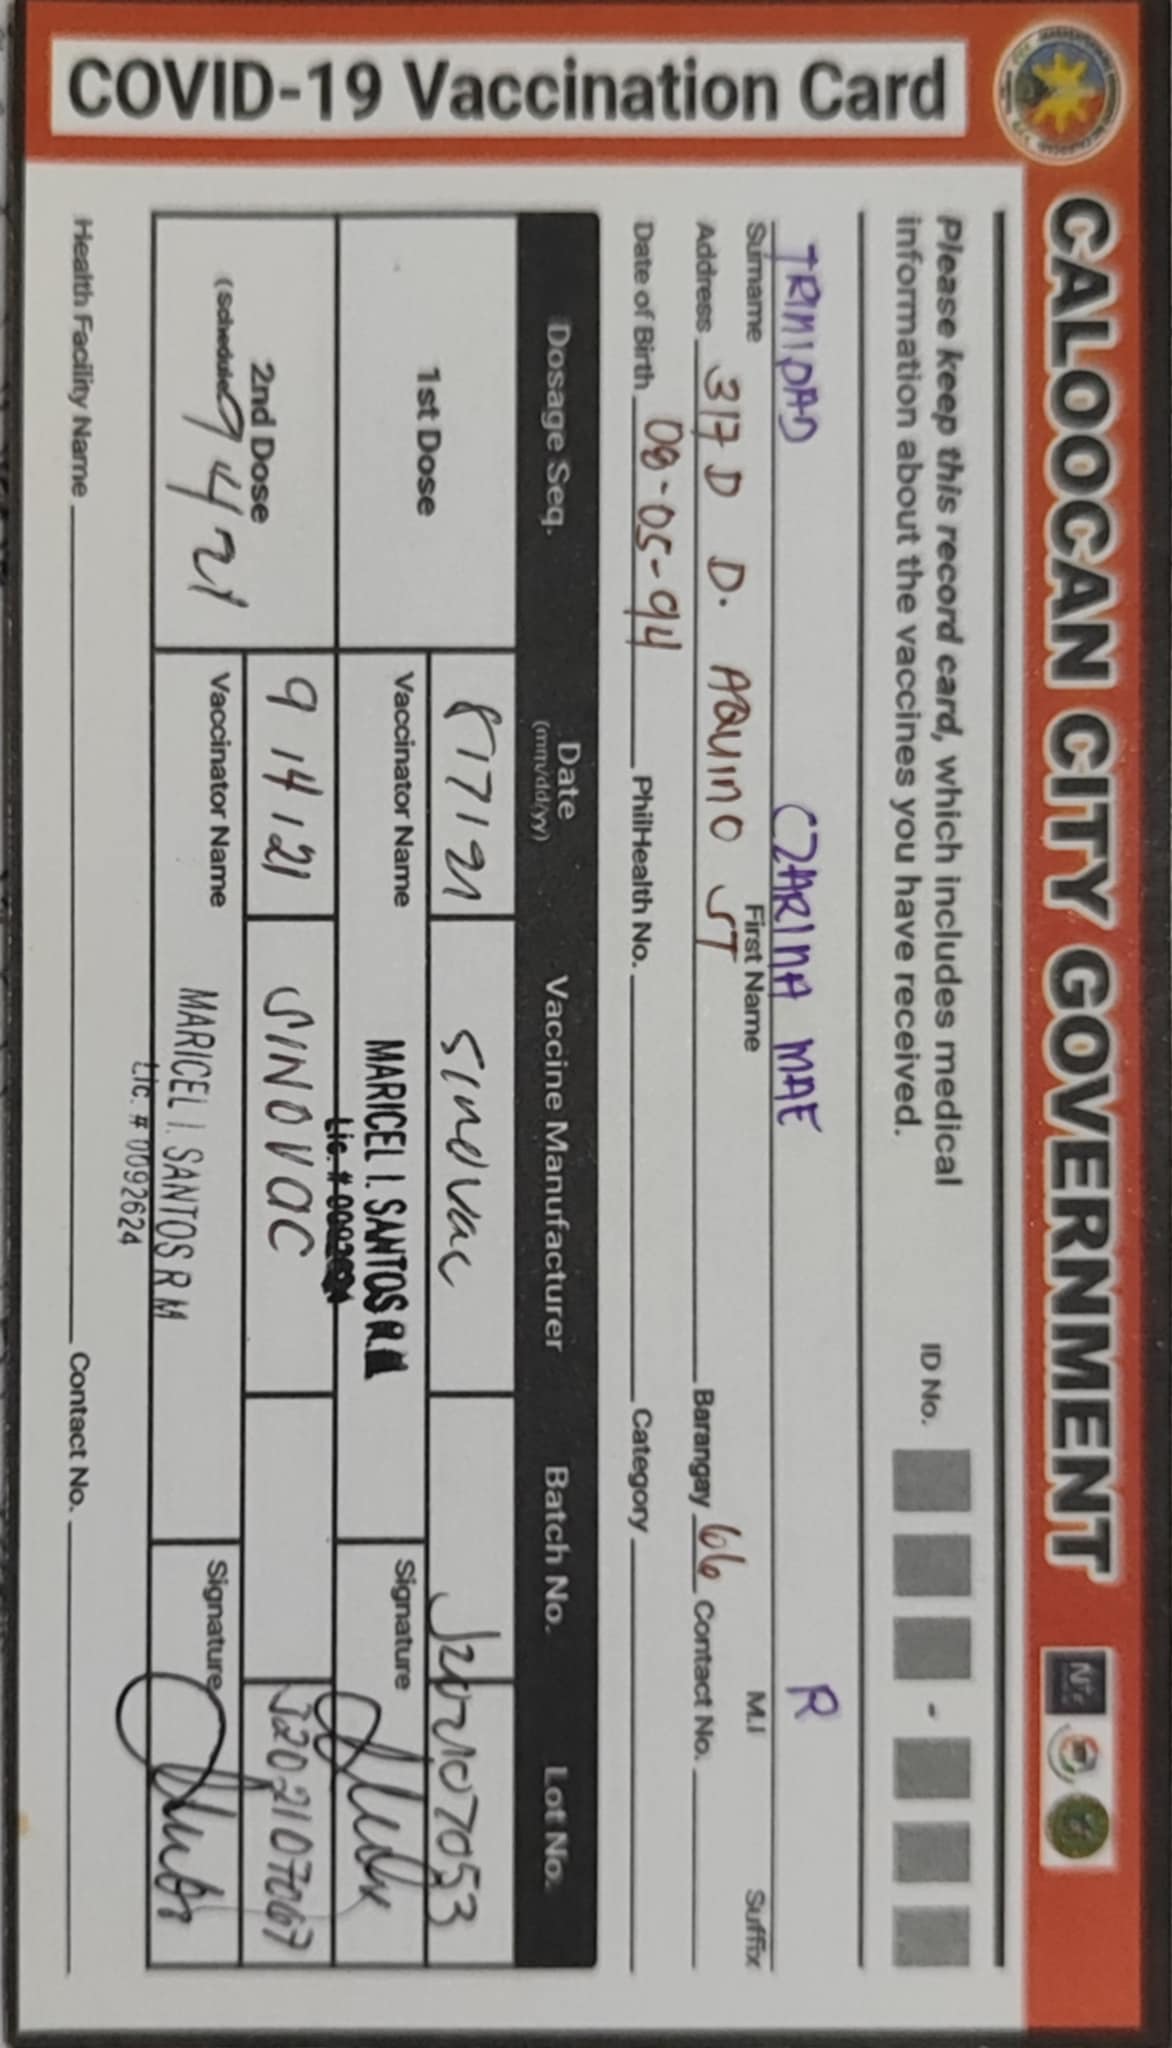 CALOOCAN CITY GOVERNMENT
COVID-19 Vaccination Card
Please keep this record card, which includes medical
information about the vaccines you have received.
ID No. -
TRINIDAD CZARINA MAE R
Surname First Name M.I Suffix
Address 317 D D. AQUINO ST Barangay 66 Contact No.
Date of Birth 08-05-94 PhilHealth No. Category
Dosage Seq. Date (mm/dd/yy) Vaccine Manufacturer Batch No. Lot No.
1st Dose 8 17 21 Sinovac J202107053
Vaccinator Name MARICEL I. SANTOS RM Signature
Lic. #
2nd Dose 9 14 21 SINOVAC J202107067
(schedule)
Vaccinator Name MARICEL I. SANTOS RM Signature
Lic. # 0092624
Health Facility Name Contact No.